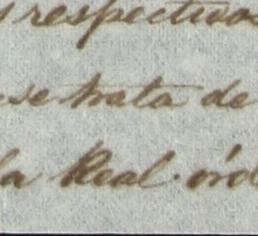 respectivos
se trata de
la Real órd